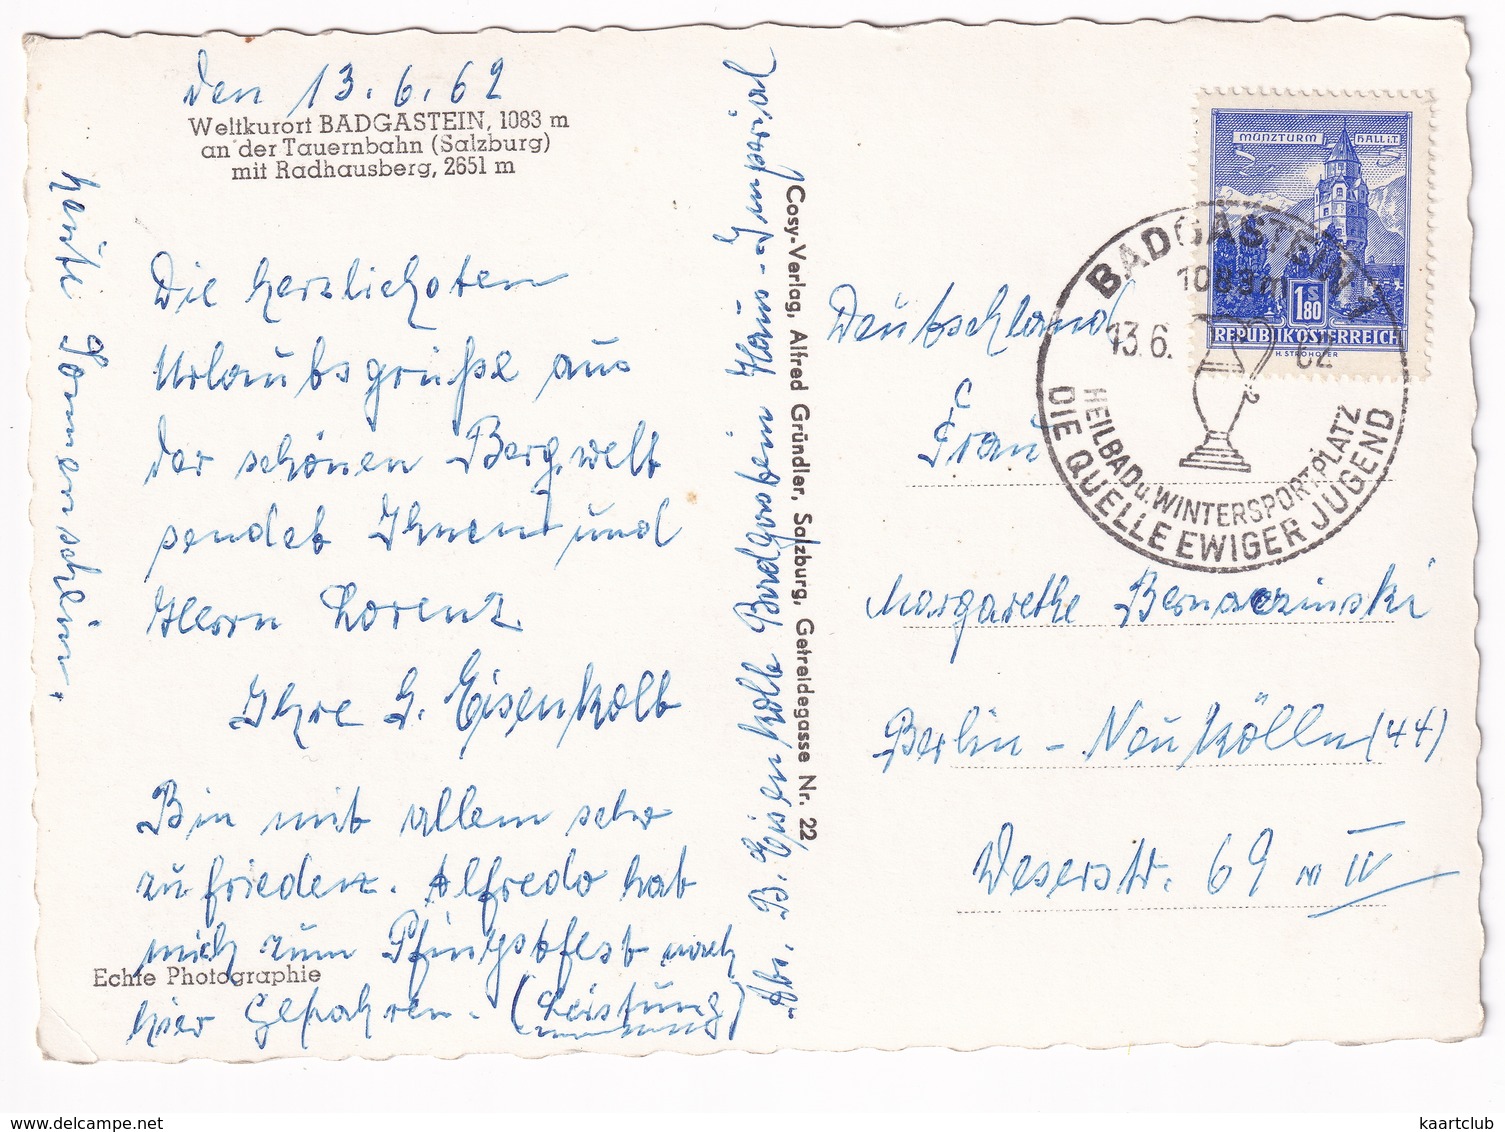 den 13.6.62
Weltkurort BADGASTEIN, 1083 m
an der Tauernbahn (Salzburg)
mit Radhausberg, 2651 m
heute Sonnenschein.
Die herzlichsten
Urlaubsgrüße aus
der schönen Bergwelt
sendet Ihnen und
Herrn Lorenz
Ihre G. Eisenkolb
Bin mit allem sehr
zufrieden. Alfredo hat
mich zum Pfingstfest nach
hier gefahren. (Leistung)
Echte Photographie
Abs. B. Eisenkolb Badgastein Haus-Imperial
Cosy-Verlag, Alfred Gründler, Salzburg, Getreidegasse Nr. 22
MÜNZTURM HALL i.T.
1.80 S
REPUBLIK ÖSTERREICH
H. STROHOFER
BADGASTEIN 1
1083m
13.6. 62
HEILBAD u. WINTERSPORTPLATZ
DIE QUELLE EWIGER JUGEND
Deutschland
Frau
Margarethe
Berlin-Neukölln (44)
Weserstr. 69 IV
delcampe.net
kaartclub